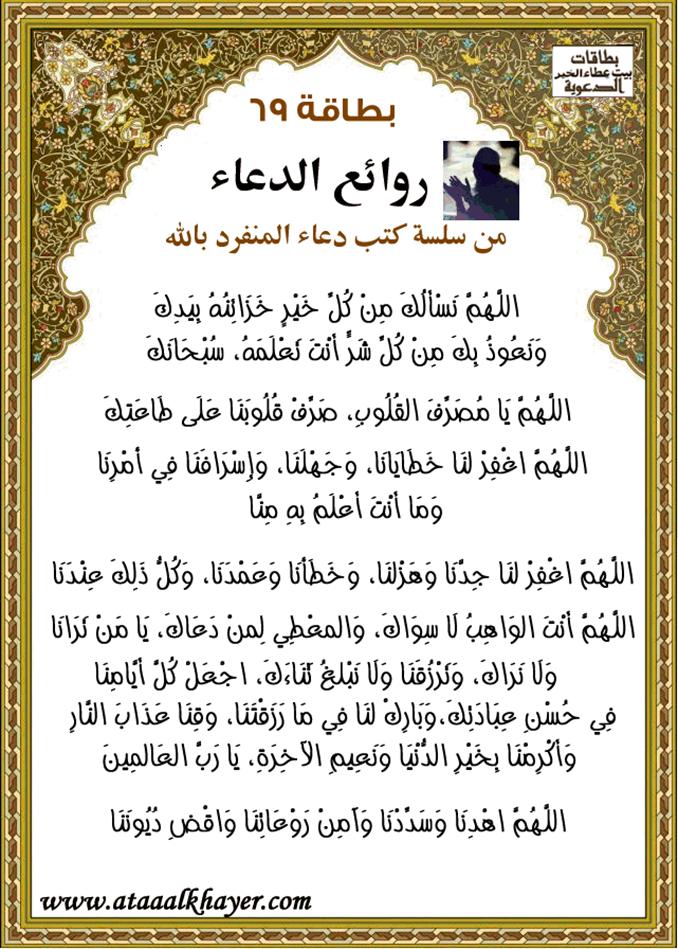 بطاقات
بيت عطاء الخير
الدعوية
بطاقة ٦٩
روائع الدعاء
من سلسة كتب دعاء المنفرد بالله
اللَّهُمَّ نَسْألُكَ مِنْ كُلِّ خَيْرٍ خَزَائِنُهُ بِيَدِكَ
وَنَعُوذُ بِكَ مِنْ كُلِّ شَرٍّ أنْتَ تَعْلَمَهُ، سُبْحَانَكَ
اللَّهُمَّ يَا مُصَرِّفَ القُلُوبِ، صَرِّفْ قُلُوبَنَا عَلَى طَاعَتِكَ
اللَّهُمَّ اغْفِرْ لنَا خَطَايَانَا، وَجَهْلَنَا، وَإسْرَافَنَا فِي أمْرِنَا
وَمَا أنْتَ أعْلَمُ بِهِ مِنَّا
اللَّهُمَّ اغْفِرْ لنَا جِدَّنَا وَهَزْلنَا، وَخَطَأنَا وَعَمْدَنَا، وَكُلُّ ذَلِكَ عِنْدَنَا
اللَّهُمَّ أنْتَ الوَاهِبُ لَا سِوَاكَ، وَالمعْطِي لِمنْ دَعَاكَ، يَا مَنْ تَرَانَا
وَلَا نَرَاكَ، وَتَرْزُقَنَا وَلَا نَبْلغُ ثَنَاءَكَ، اجْعَلْ كُلَّ أيَّامِنَا
فِي حُسْنِ عِبَادَتِكَ،وَبَارِكْ لنَا فِي مَا رَزَقْتَنَا، وَقِنَا عَذَابَ النَّارِ
وَأكْرِمْنَا بِخَيْرِ الدُّنْيَا وَنَعِيمِ الآخِرَةِ، يَا رَبَّ العَالمِينَ
اللَّهُمَّ اهْدِنَا وَسَدِّدْنَا وَآمِنْ رَوْعَاتِنَا وَاقْضِ دُيُونَنَا
www.ataaalkhayer.com